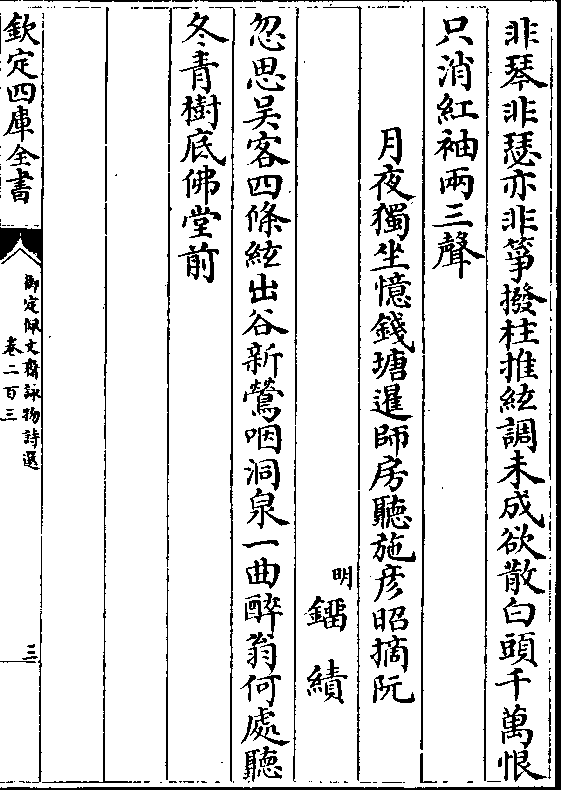 非琴非瑟亦非箏撥柱推絃調未成欲散白頭千萬恨
只消紅袖兩三聲
月夜獨坐憶錢塘暹師房聽施彦昭摘阮
明 鎦績
忽思吳客四條絃出谷新鶯咽洞泉一曲醉翁何處聽
冬青樹底佛堂前
欽定四庫全書
御定佩文齋詠物詩選
卷二百三
三